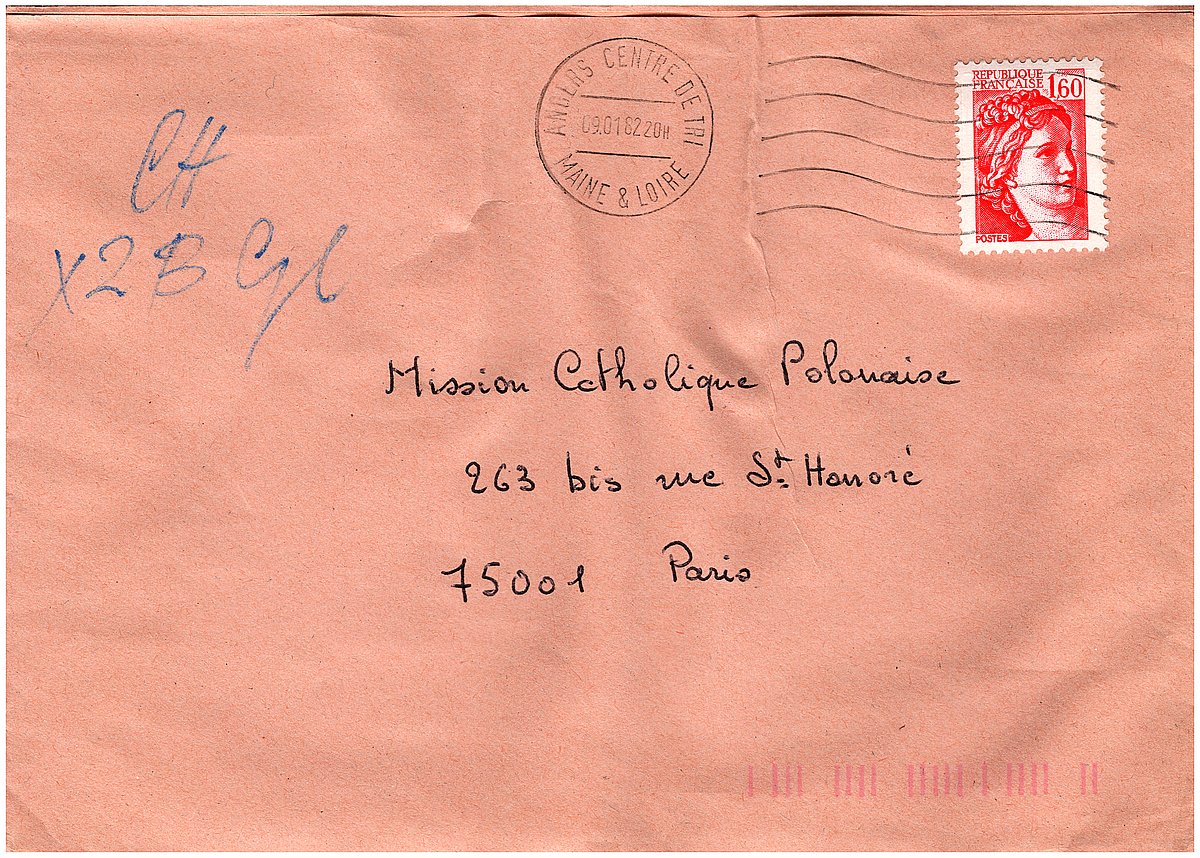 ANGERS CENTRE DE TRI
09.01 82 20H
MAINE & LOIRE
REPUBLIQUE
FRANÇAISE 1,60
POSTES
CH
Mission Catholique Polonaise
263 bis rue St. Honoré
75001 Paris